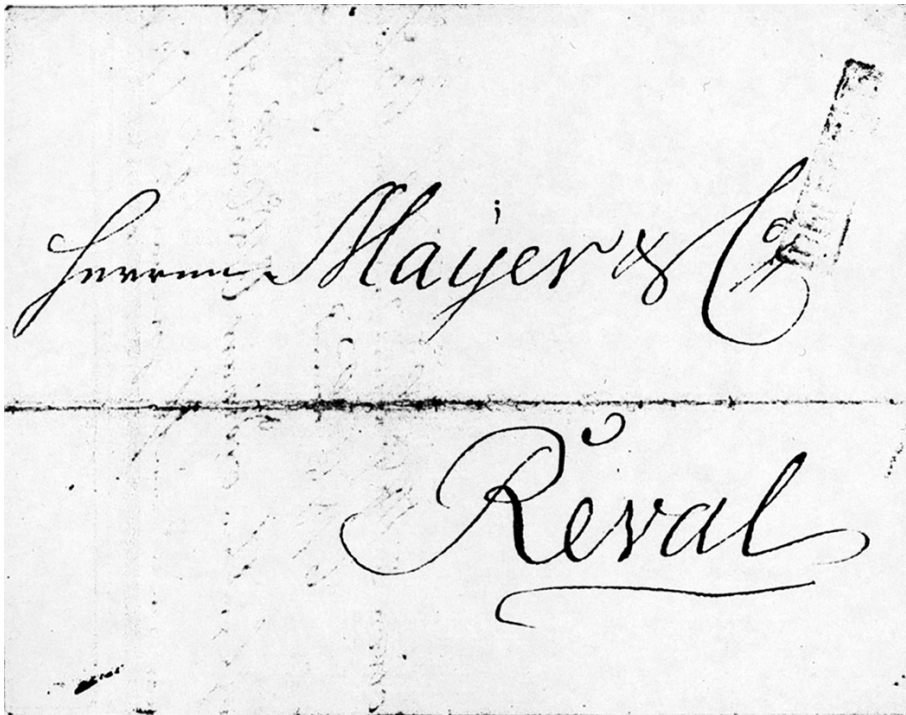 Herrn Mayer & Co
Reval